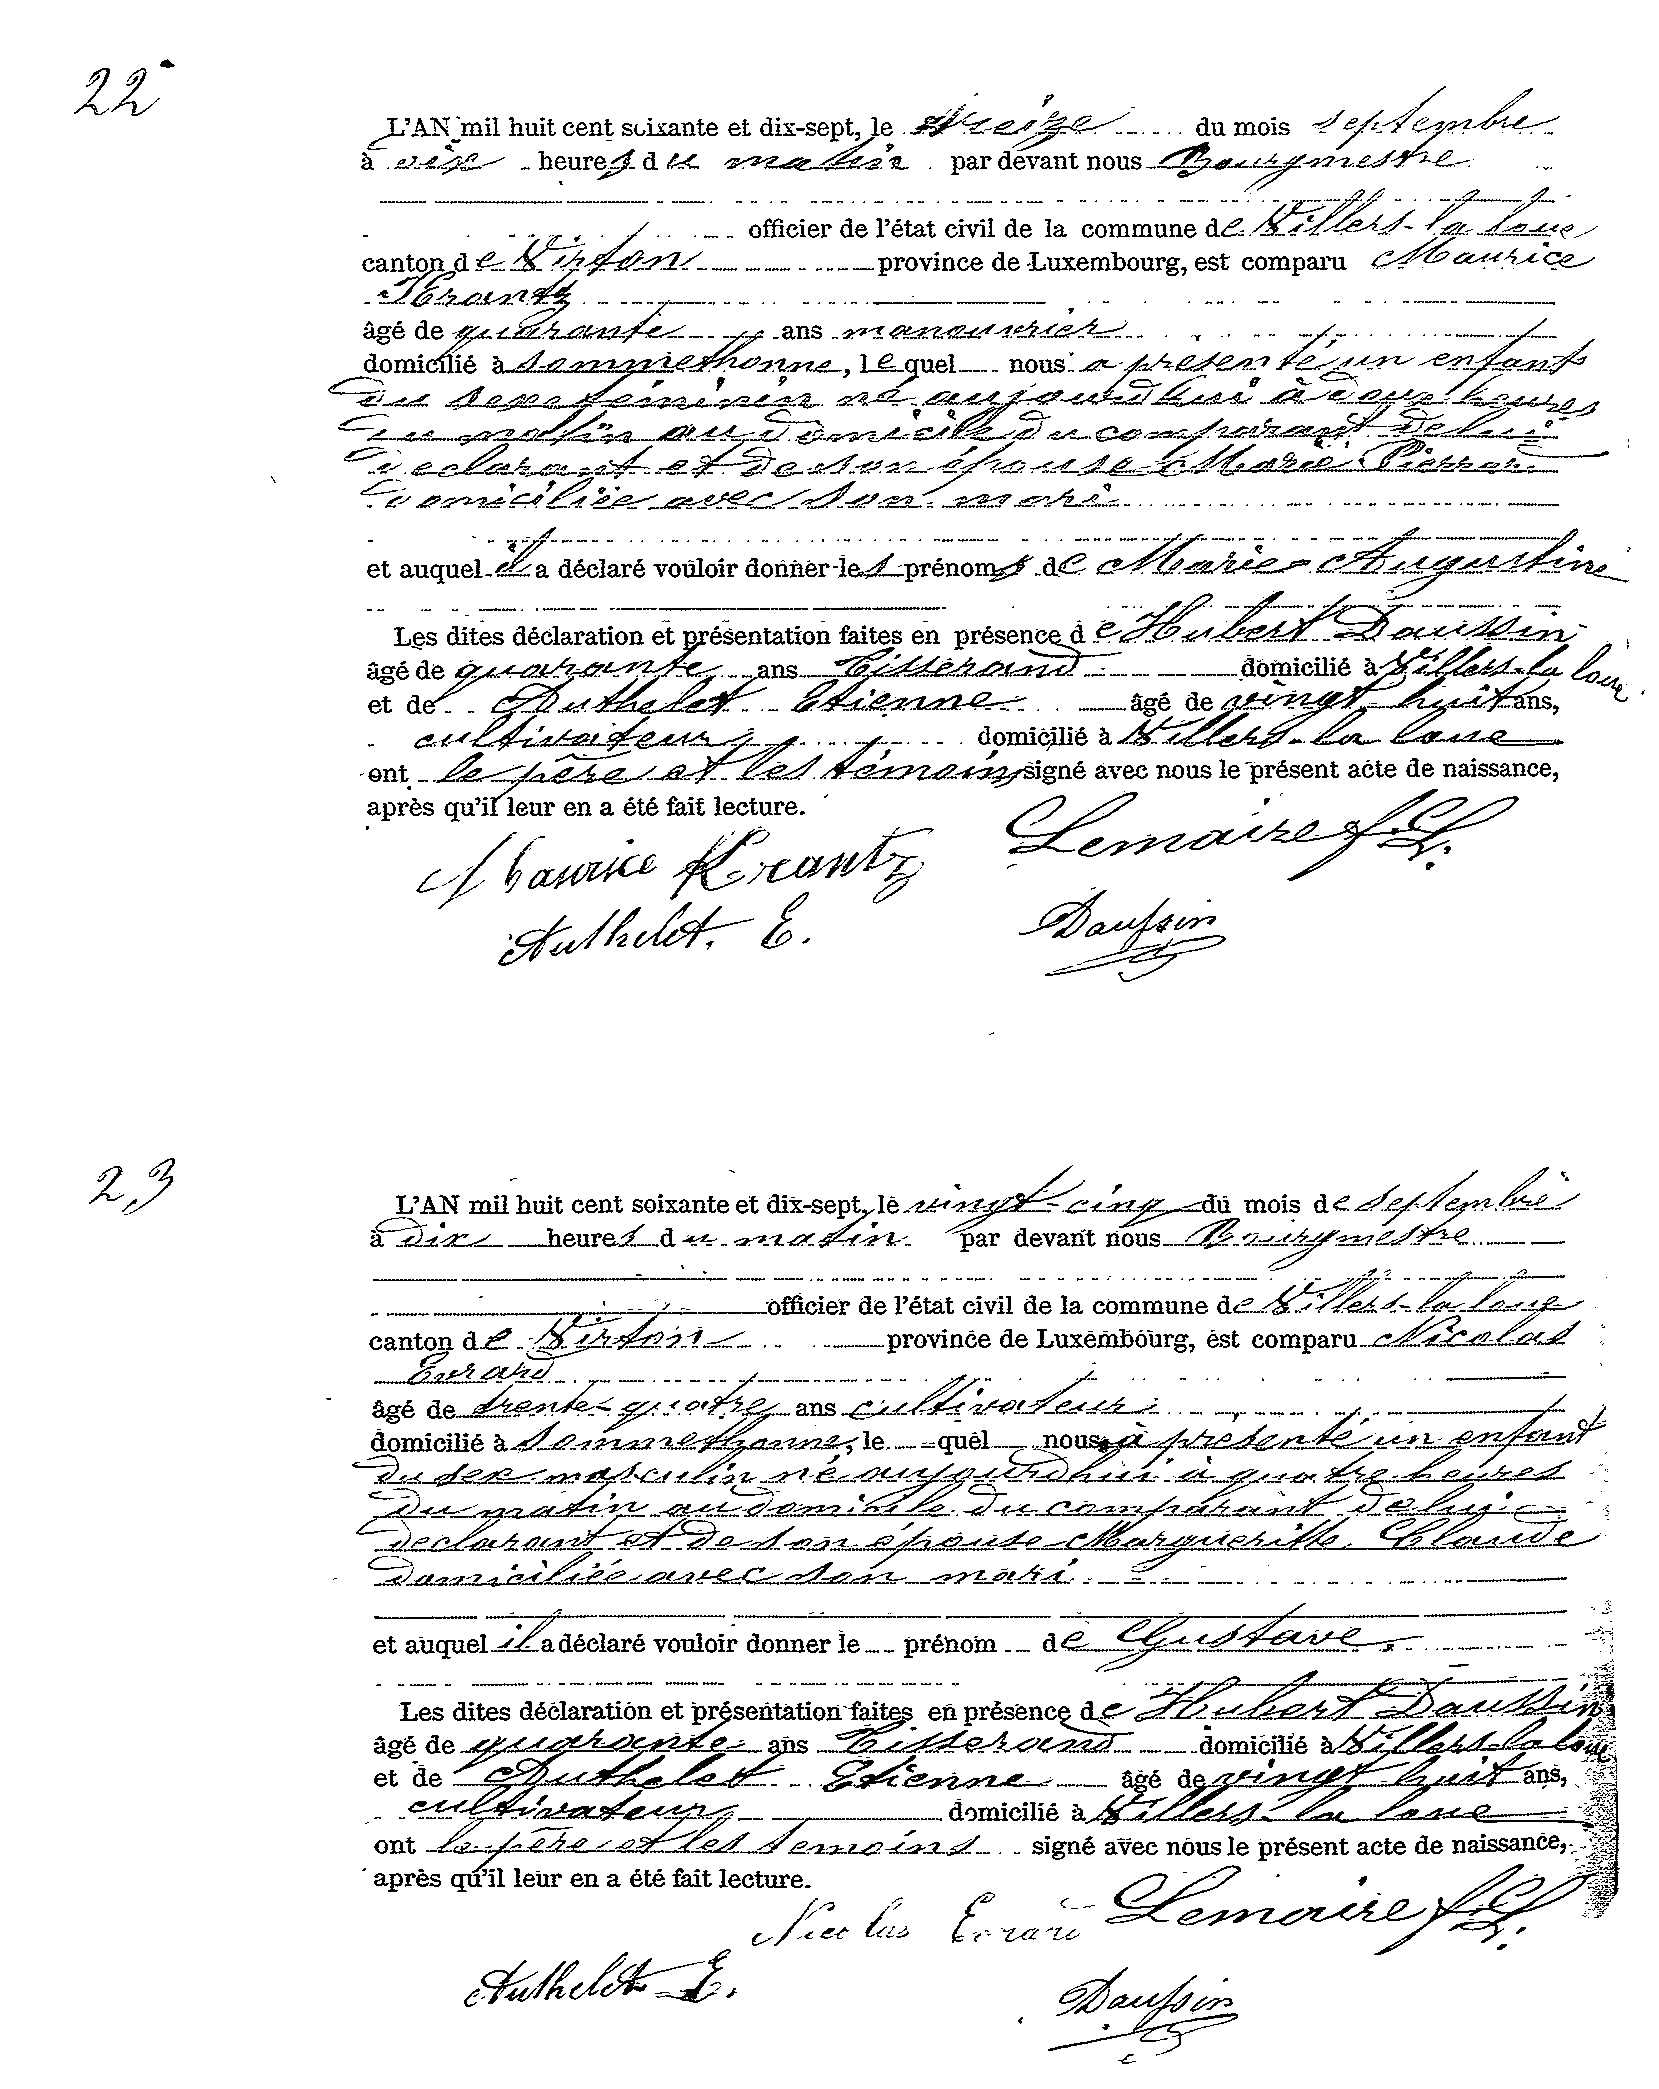 22
L'AN mil huit cent soixante et dix-sept, le treize du mois septembre
à dix heures du matin par devant nous Bourgmestre
officier de l'état civil de la commune de Villers-la loue
canton de Virton province de Luxembourg, est comparu Maurice
Krantz
âgé de quarante ans manouvrier
domicilié à sommethonne, lequel nous a présenté un enfant
du sexe féminin né aujourdhui à deux heures
du matin au domicile du comparant de lui
declarant et de son épouse Marie Pierrard
domiciliée avec son mari
et auquel il a déclaré vouloir donner les prénoms de Marie Augustine
Les dites déclaration et présentation faites en présence de Hubert Daussin
âgé de quarante ans Tisserand domicilié à Villers-la loue
et de Authelet Etienne âgé de vingt huit ans,
cultivateur domicilié à Villers-la loue
ont le père et les témoins signé avec nous le présent acte de naissance,
après qu'il leur en a été fait lecture.
Maurice Krantz Lemaire f.f.
Authelet. E. Daussin
23
L'AN mil huit cent soixante et dix-sept, le vingt-cinq du mois de septembre
à dix heures du matin par devant nous Bourgmestre
officier de l'état civil de la commune de Villers-la loue
canton de Virton province de Luxembourg, est comparu Nicolas
Evrard
âgé de trente-quatre ans cultivateur
domicilié à sommethonne, le quel nous a présenté un enfant
du sex masculin né aujourdhui à quatre heures
du matin au domicile du comparant de lui
declarant et de son épouse Margueritte Claude
domiciliée avec son mari
et auquel il a déclaré vouloir donner le prénom de Gustave.
Les dites déclaration et présentation faites en présence de Hubert Daussin
âgé de quarante ans Tisserand domicilié à Villers-la loue
et de Authelet Etienne âgé de vingt huit ans,
cultivateur domicilié à Villers-la loue
ont le père et les temoins signé avec nous le présent acte de naissance,
après qu'il leur en a été fait lecture.
Nicolas Evrard Lemaire f.f.
Authelet E. Daussin